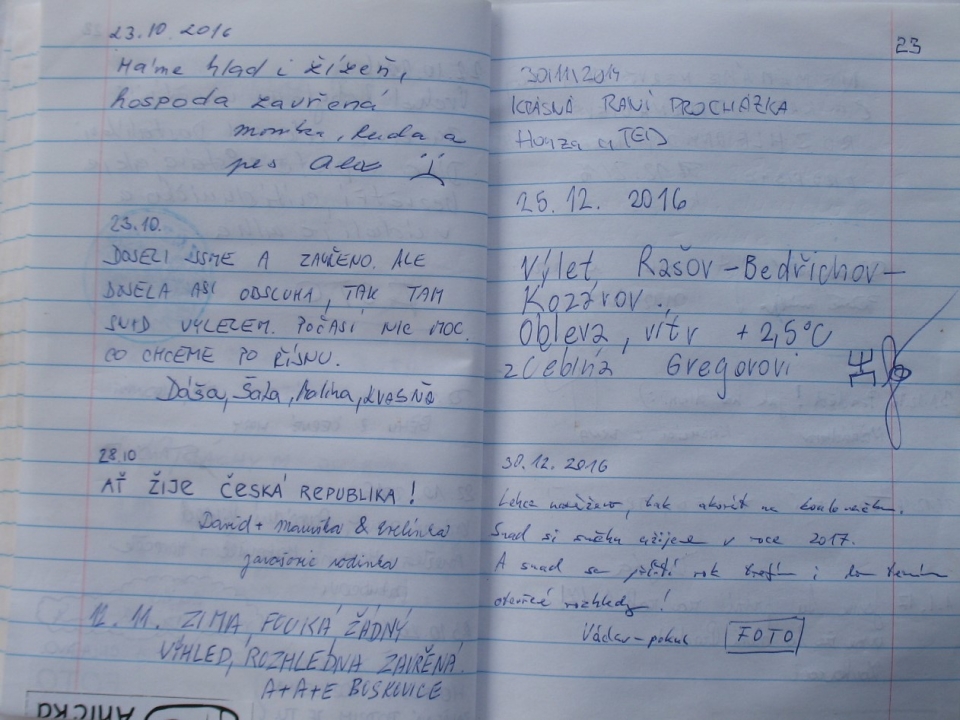 23.10. 2016
Máme hlad i žízeň,
hospoda zavřená
Monika, Ruda a
pes Alex
23.10.
DOŠELI JSME A ZAVŘENO. ALE
DOŠELA ASI OBSLUHA, TAK TAM
SNAD VYLEZEM. POČASÍ NIC MOC.
CO CHCEME PO ŘÍJNU.
Dáša, Saša, Malina, KVASNĚ
28.10
AŤ ŽIJE ČESKÁ REPUBLIKA!
David + mamka & Evelínka
rodinka
12. 11. ZIMA FOUKÁ ŽÁDNÝ
VÝHLED, ROZHLEDNA ZAVŘENÁ.
A+A+E BOSKOVICE
Anička
23
30\11\2014
KRÁSNÁ RANÍ PROCHÁZKA
Honza a TED
25.12. 2016
Výlet Rašov-Bedřichov-
Kozárov.
Obleva, vítr +2,5°C
z Čebína Gregorovi
30.12.2016
Lehce, tak akorát na
Snad si sněhu užijeme v roce 2017.
A snad se příští rok trefím i do termínu
otevření rozhledny!
Václav-pokus FOTO